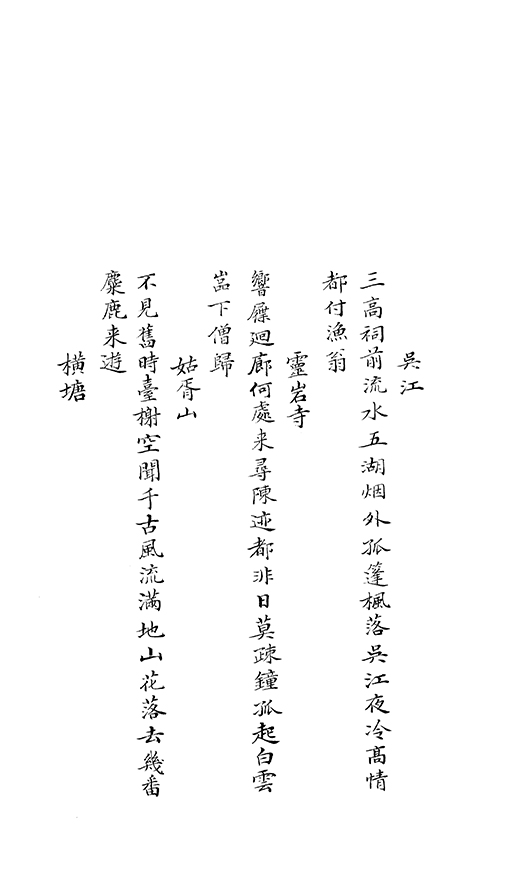 吳江
三高祠前流水五湖烟外孤篷楓落吳江夜冷高情
都付漁翁
靈岩寺
響屧廻廊何處来尋陳迹都非日莫疎鐘孤起白雲
嵓下僧歸
姑胥山
不見舊時臺榭空聞千古風流滿地山花落去幾番
麋鹿来遊
橫塘